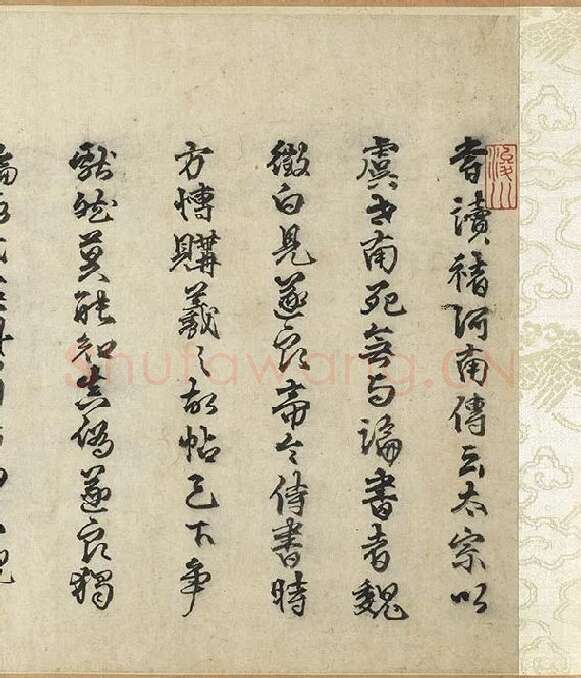 嘗讀褚河南傳云太宗以
虞世南死無與論書者魏
徵白見遂良帝令侍書時
方博購羲之故帖天下爭
獻然莫能知真偽遂良獨
Shufawang.CN